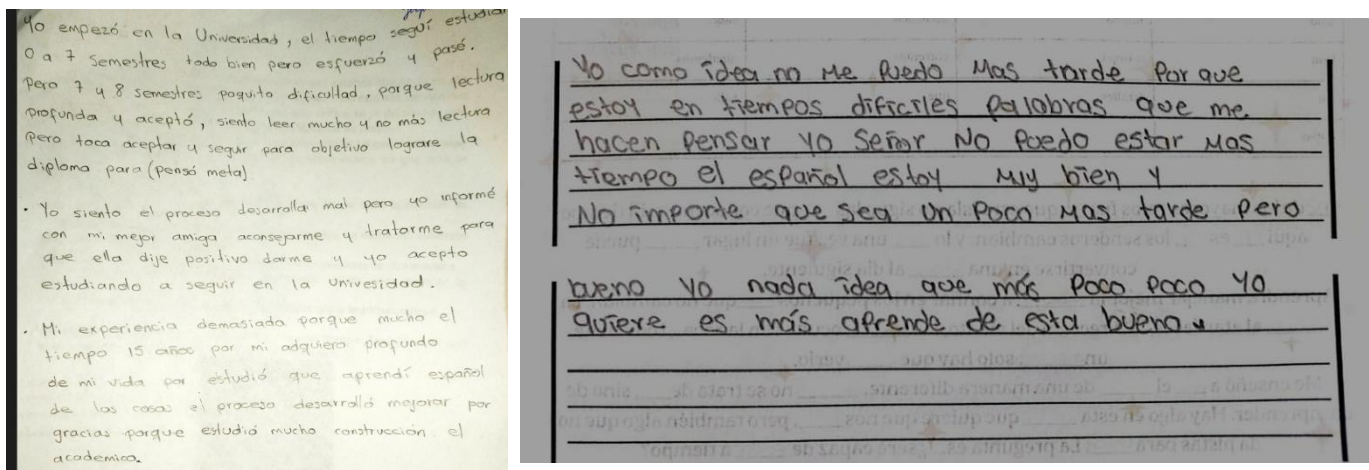 Yo empezó en la Universidad, el tiempo seguí estudiar
0 a 7 semestres todo bien pero esfuerzó y pasé.
Pero 7 y 8 semestres poquito dificultad, porque lectura
profunda y aceptó, siento leer mucho y no más lectura
Pero toca aceptar y seguir para objetivo lograre la
diploma para (pensó meta)
• Yo siento el proceso desarrolla mal pero yo informé
con mi mejor amiga aconsejarme y tratarme para
que ella dije positivo darme y yo acepto
estudiando a seguir en la Univesidad.
• Mi experiencia demasiada porque mucho el
tiempo 15 años por mi adquiero profundo
de mi vida por estudió que aprendí español
de las cosas el proceso desarrolló mejorar por
gracias porque estudió mucho construcción el
academico.
Yo como idea no me puedo mas tarde por que
estoy en tiempos dificiles palabras que me
hacen pensar yo señor No puedo estar mas
tiempo el español estoy muy bien y
No importe que sea un poco mas tarde pero
bueno yo nada idea que más poco poco yo
quiere es más aprende de esta bueno